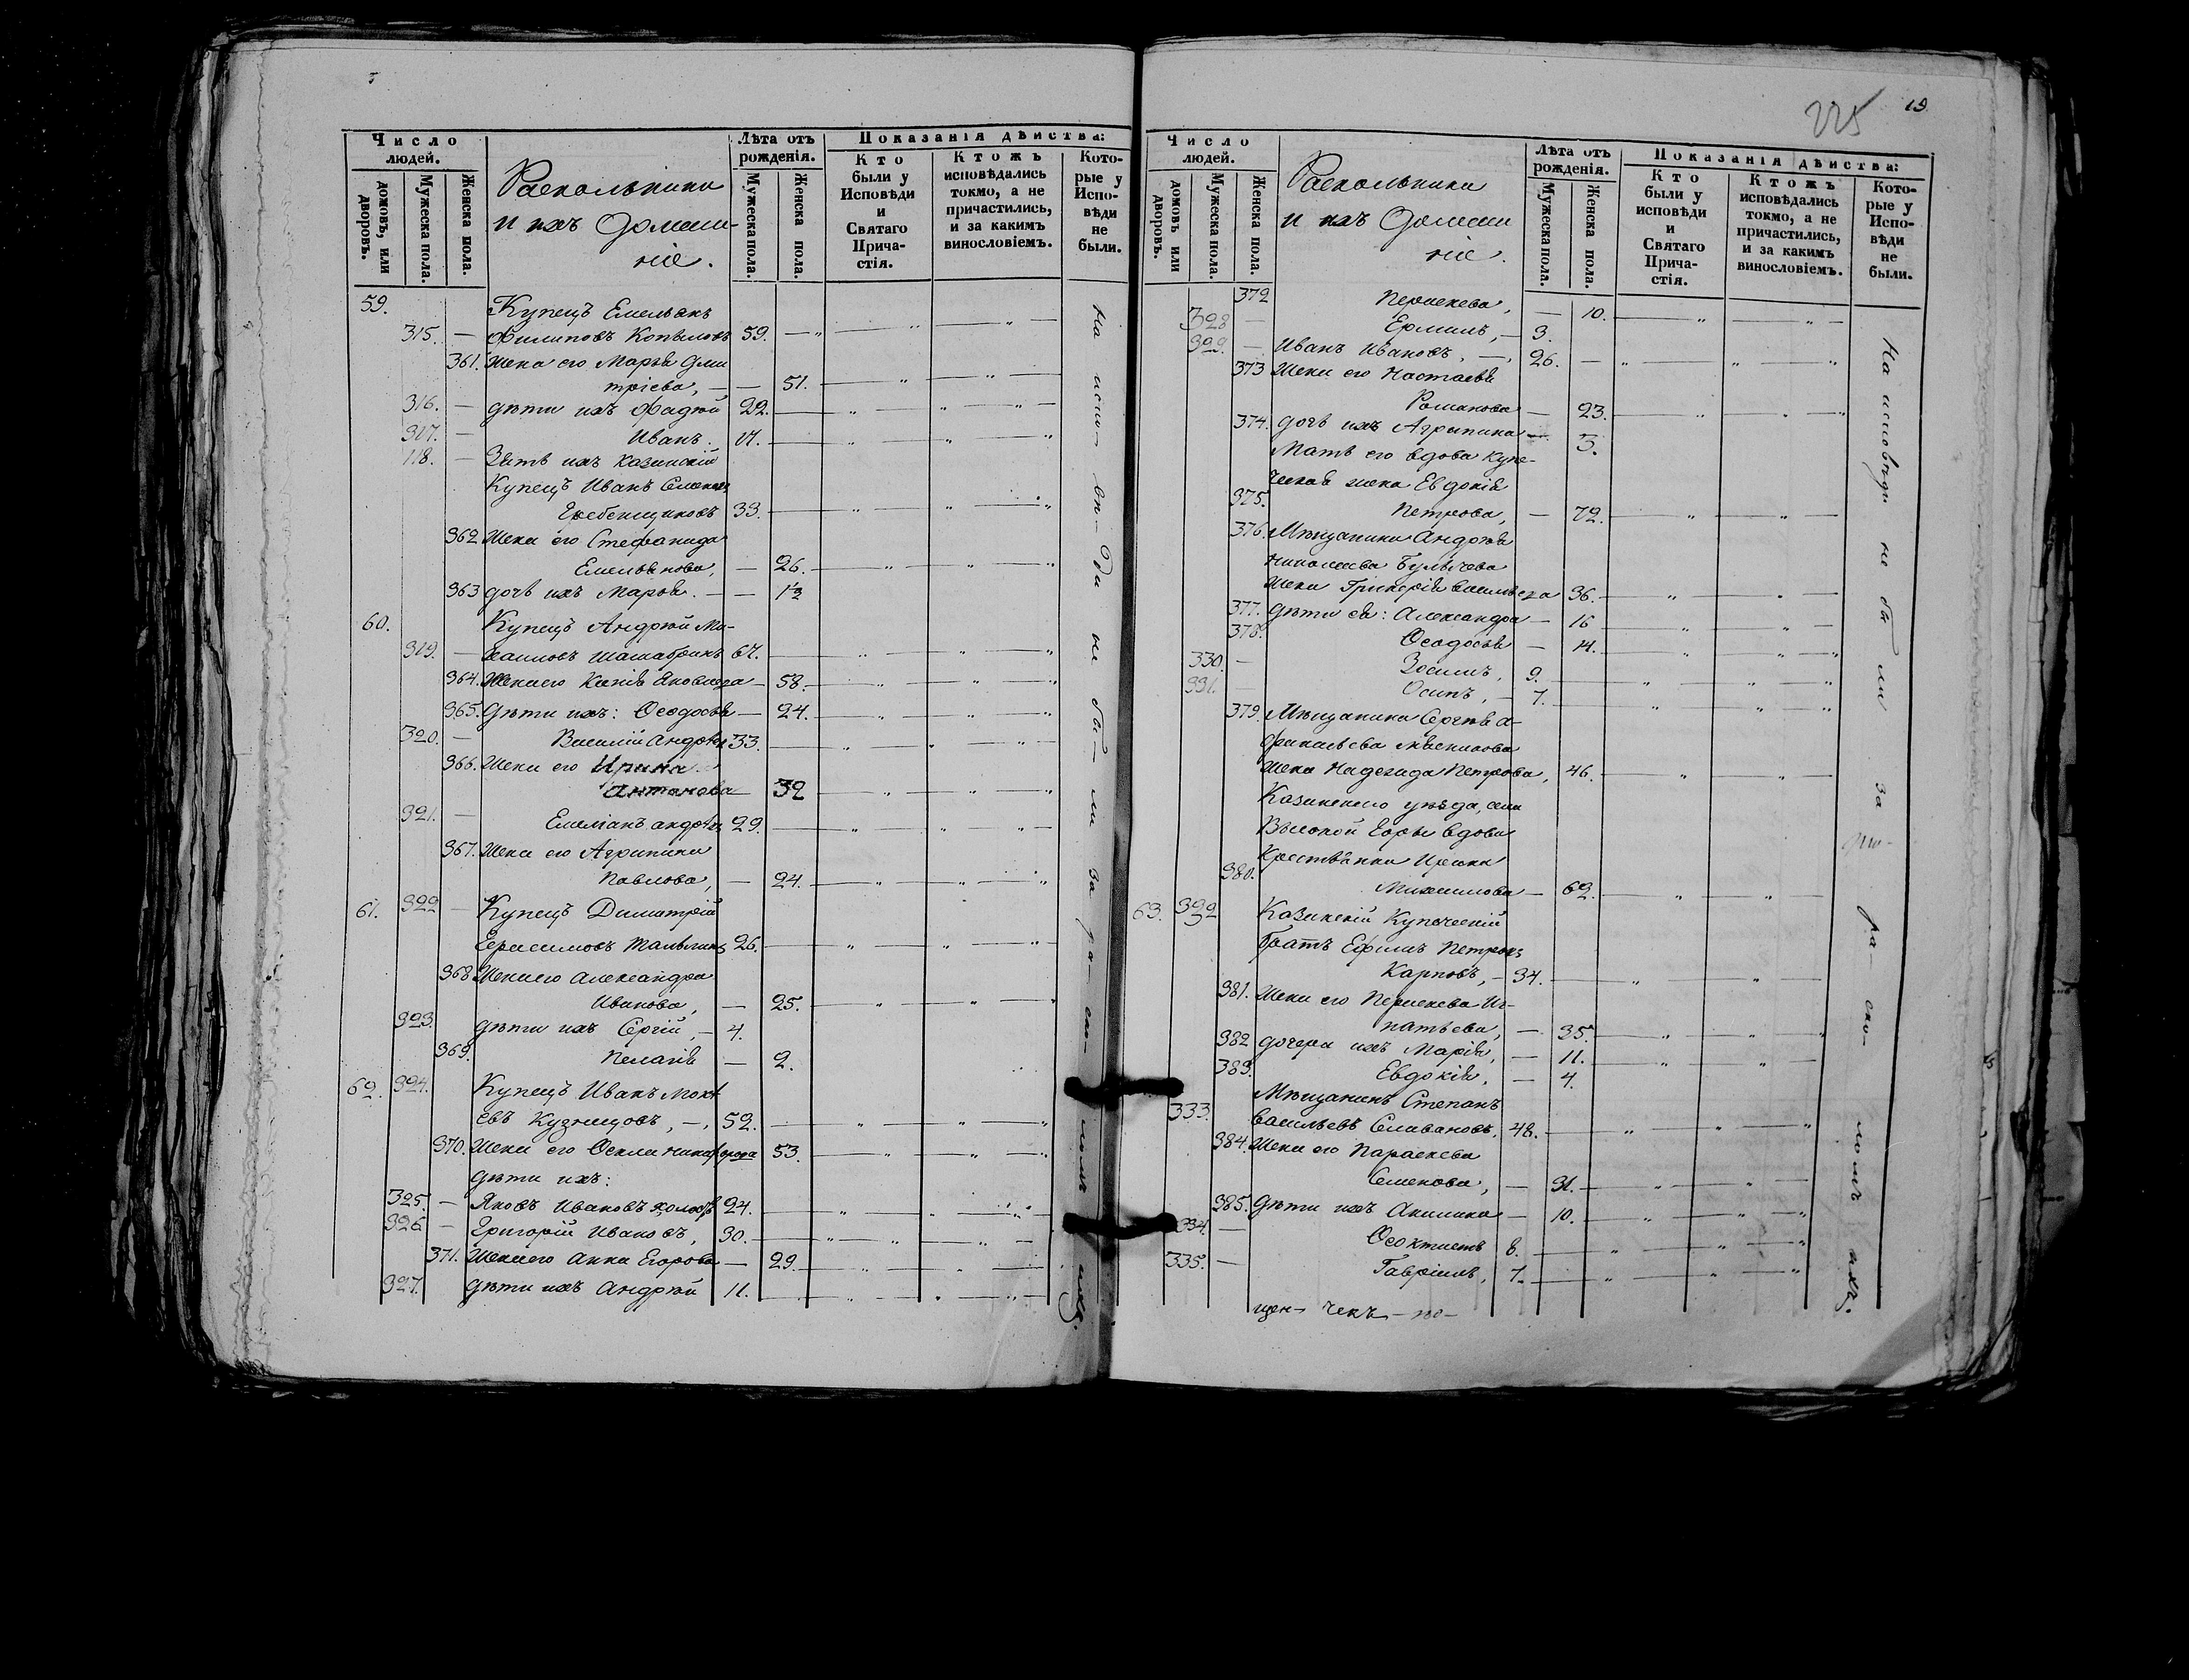 225
19
Число людей.
домовъ, или дворовъ.
Мужеска пола.
Женска пола.
Раскольники
и ихъ домаш-
ніе.
Лѣта отъ рожденія.
Мужеска пола.
Женска пола.
Показанія дѣйства:
Кто были у Исповѣди и Святаго Прича-стія.
Ктожъ исповѣдались токмо, а не причастились, и за какимъ винословіемъ.
Кото-рые у Испо-вѣди не были.
59. Купецъ Емельянъ
315. — Филиповъ Копыловъ 59.
361. Жена его Марья Дми
тріева, — — 51.
316. — дѣти ихъ Фадѣй 22.
317. — Иванъ. 17.
118. — Зять ихъ Казанскій
Купецъ Иванъ Семеновъ
Гребенщиковъ 33.
362 Жена его Стефанида
Емельянова, — 26.
363 дочь ихъ Марья. — — 1½
60. Купецъ Андрей Ми-
319. — хаиловъ Шашабринъ 67.
364. Жена его Ксенія Яковлева — 58.
365. Дѣти ихъ: Ѳеодосья — 24.
320. — Василій Андреевъ 33.
366. Жена его Ирина
Антонова 32
321. — Емеліанъ Андреевъ 29.
367. Жена его Агрипина
Павлова, — 24.
61. 322 — Купецъ Димитрій
Герасимовъ 26.
368 Жена его Александра
Иванова, — 25.
323. дѣти ихъ Сергій, — 4.
369. Пелагія — 2.
62. 324. Купецъ Иванъ Мокѣ
евъ Кузнецовъ, — 52.
370. Жена его Ѳекла Никифорова 53.
дѣти ихъ:
325. — Яковъ Ивановъ холостъ 24.
326 — Григорій Ивановъ, 30.
371. Жена его Анна Егорова — 29.
327. дѣти ихъ Андрей 11.
На испо- вѣ- ди не бы- ли за ра- ско- ломъ ихъ.
Число людей.
домовъ или дворовъ.
Мужеска пола.
Женска пола.
Раскольники
и ихъ домаш
ніе.
Лѣта отъ рожденія.
Мужеска пола.
Женска пола.
Показанія дѣйства:
Кто были у исповѣди и Святаго Прича-стія.
Ктожъ исповѣдались токмо, а не причастились, и за какимъ винословіемъ.
Кото-рые у Испо-вѣди не были.
372 Параскева, — 10.
328 — Ермилъ, — 3.
329. — Иванъ Ивановъ, — 26.
373 Жена его Настасья
Романова — 23.
374. дочь ихъ Агрыпина — 3.
Мать его вдова Купе-
ческая жена Евдокія
375. Петрова, — 72.
376. Мѣщанина Андрея
Николаева Булычева
Жена Гликерія Васильева 36.
377. дѣти ея: Александра — 16
378. Ѳеодосья — 14.
330. — Зосимъ, 9.
331. — Осипъ, — 7.
379. Мѣщанина Сергѣя А-
фанасьева
Жена Надежда Петрова, 46.
Казанскаго уѣзда, села
Высокой Горы вдова
Крестьянка Ирина
380. Михаилова — 62.
63. 332 Казанскій Купеческій
братъ Ефимъ Петровъ
Карповъ, — 34.
381. Жена его Параскева Иг-
натьева, — 35.
382 дочери ихъ Марія, — 11.
383. Евдокія, — 4.
Мѣщанинъ Степанъ
333. Васильевъ Селивановъ, 48.
384. Жена его Параскева
Семенова, — 31.
385. дѣти ихъ Акилина — 10.
334. — Ѳеоктистъ 8.
335. — Гавріилъ, 7.
На исповѣди не бы ли за ра- ско- ломъ ихъ.
щен- чекъ — по-